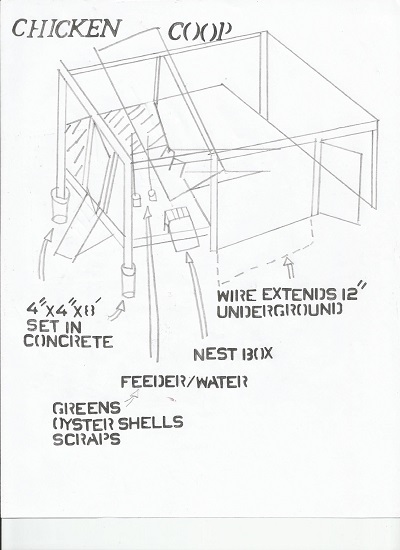 CHICKEN COOP
4"X4"X8'
SET IN
CONCRETE
WIRE EXTENDS 12"
UNDERGROUND
NEST BOX
FEEDER/WATER
GREENS
OYSTER SHELLS
SCRAPS